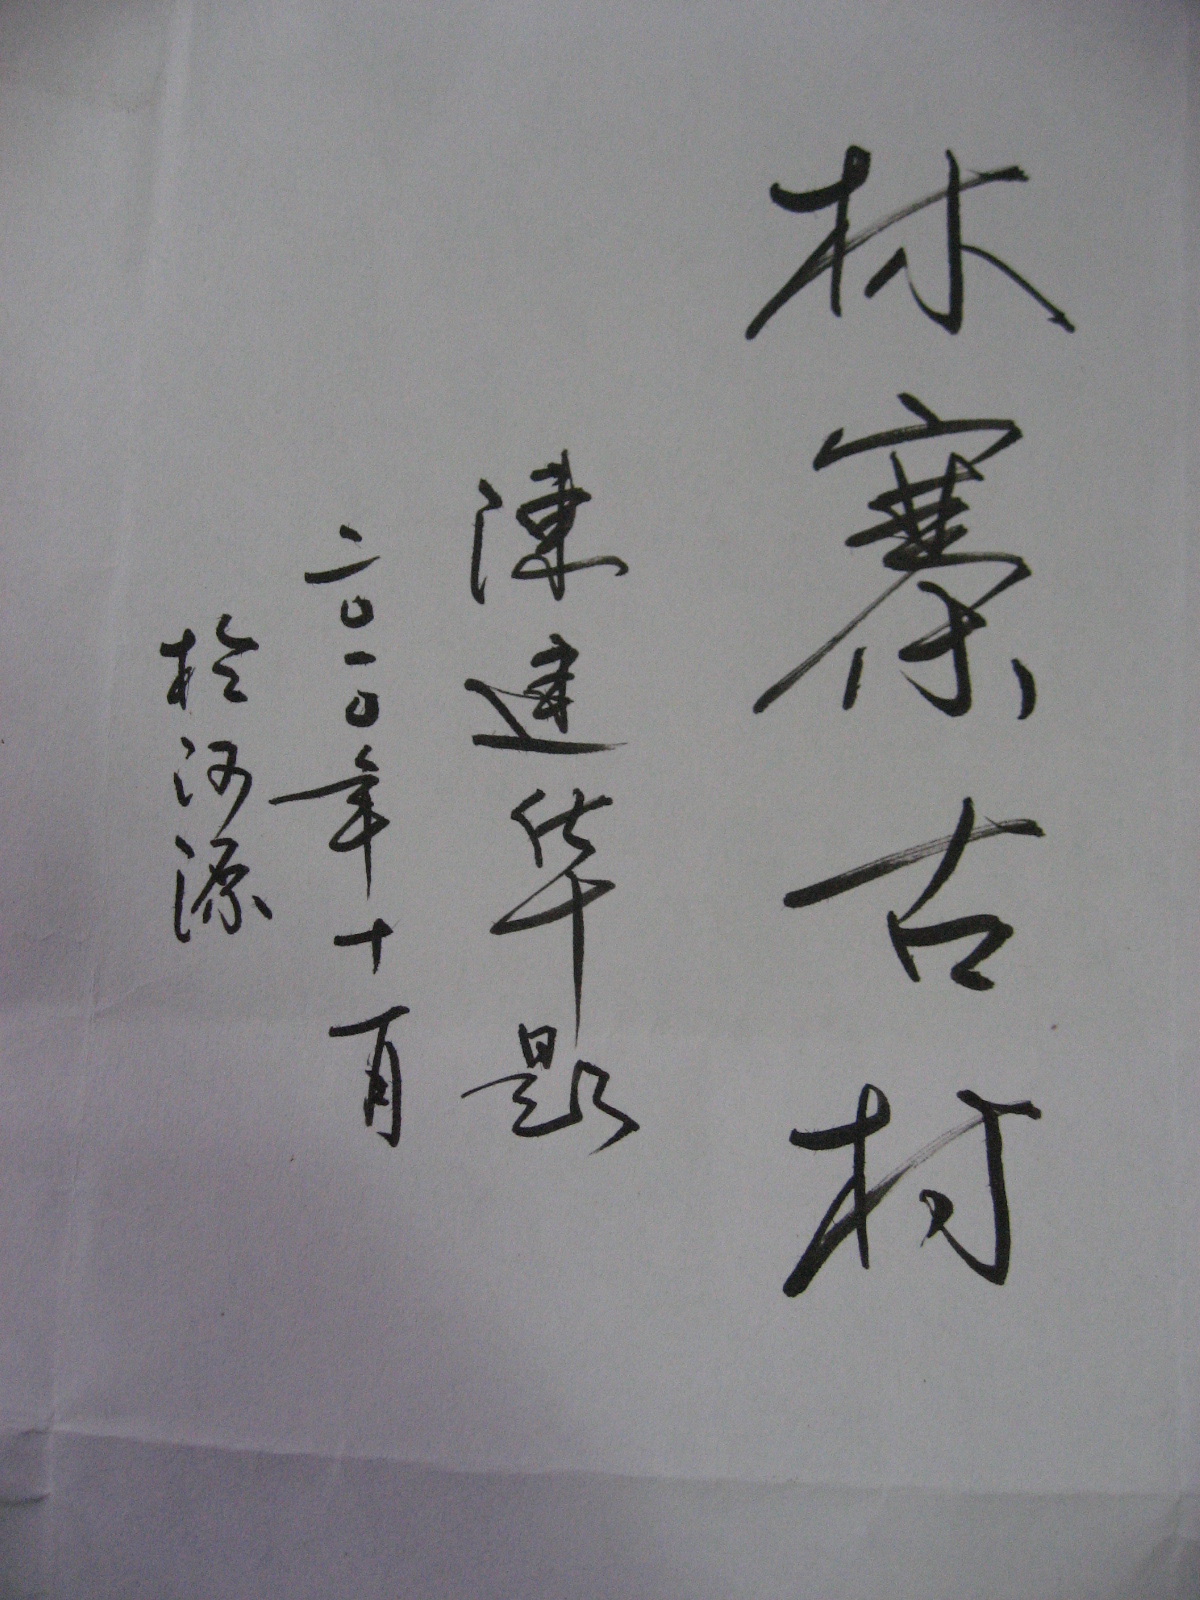 林寨古村
陳建华題
二〇一〇年十一月
於河源